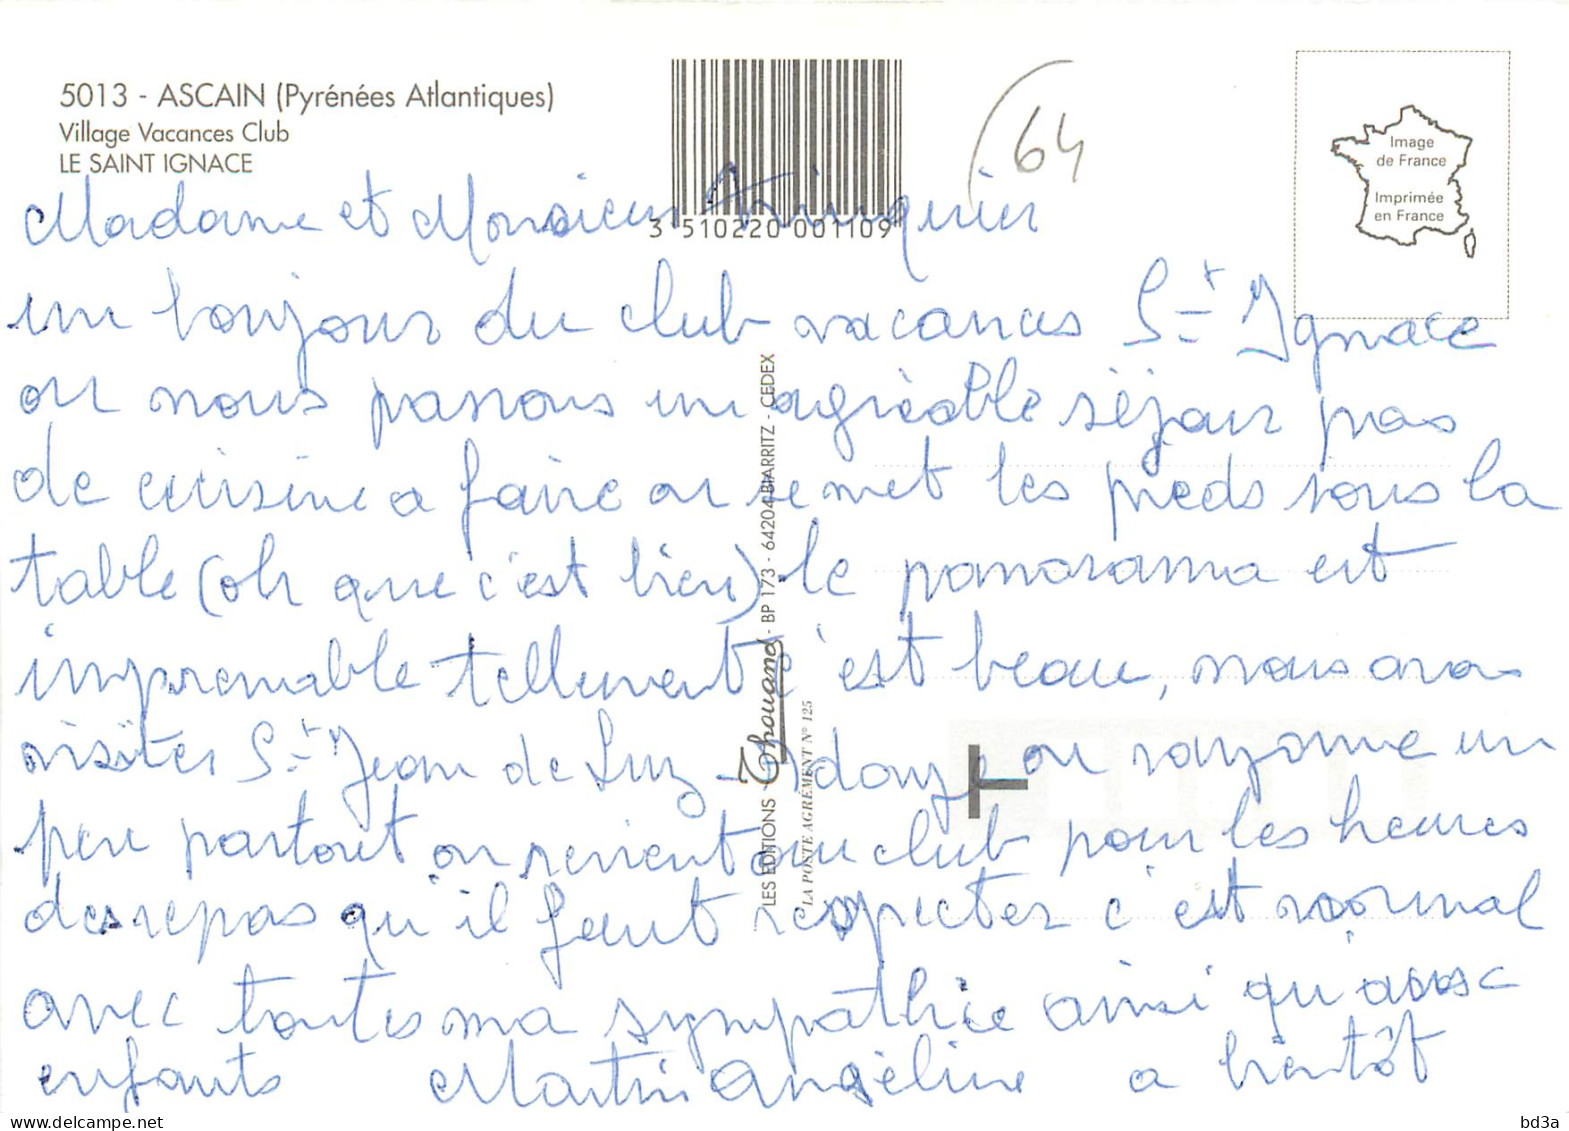 5013 - ASCAIN (Pyrénées Atlantiques)
Village Vacances Club
LE SAINT IGNACE
3 510220 001109
64
Image
de France
Imprimée
en France
LES EDITIONS Thouand - BP 173 - 64204 BIARRITZ - CEDEX
LA POSTE AGRÉMENT N° 125
Madame et Monsieur
un bonjour du club vacances St Ignace
ou nous passons un agréable séjour pas
de cuisine a faire on se met les pieds sous la
table (oh que c'est bien) le panorama est
imprenable tellement c'est beau, nous avons
visiter St Jean de Luz - on rayonne un
peu partout on revient au club pour les heures
des repas qu'il faut respecter c'est normal
avec toutes ma sympathie ainsi qu'a
enfants Martin Angéline a bientôt
delcampe.net
bd3a